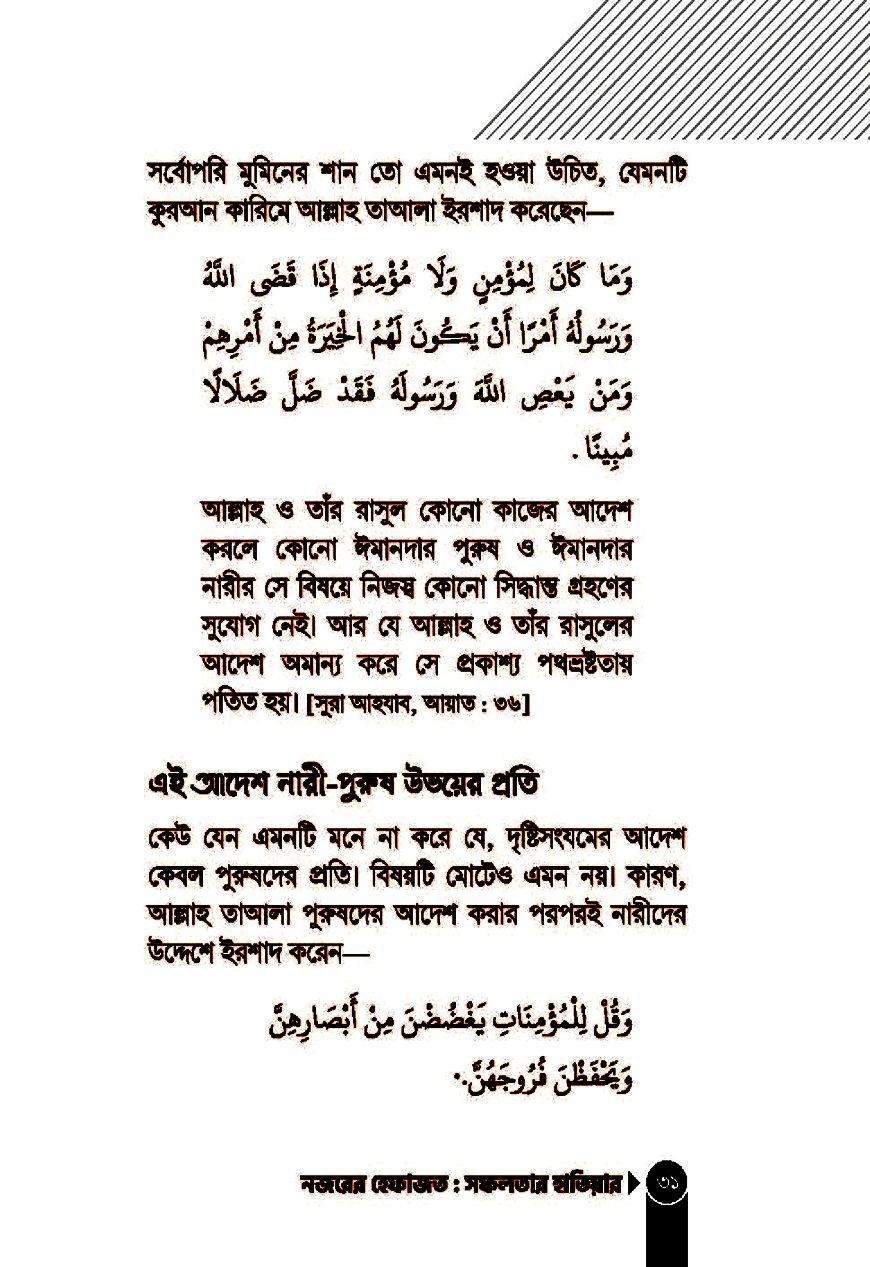 সর্বোপরি মুমিনের শান তো এমনই হওয়া উচিত, যেমনটি
কুরআন কারিমে আল্লাহ তাআলা ইরশাদ করেছেন—
وَمَا كَانَ لِمُؤْمِنٍ وَلَا مُؤْمِنَةٍ إِذَا قَضَى اللَّهُ
وَرَسُولُهُ أَمْرًا أَنْ يَكُونَ لَهُمُ الْخِيَرَةُ مِنْ أَمْرِهِمْ
وَمَنْ يَعْصِ اللَّهَ وَرَسُولَهُ فَقَدْ ضَلَّ ضَلَالًا
مُبِينًا .
আল্লাহ ও তাঁর রাসুল কোনো কাজের আদেশ
করলে কোনো ঈমানদার পুরুষ ও ঈমানদার
নারীর সে বিষয়ে নিজস্ব কোনো সিদ্ধান্ত গ্রহণের
সুযোগ নেই। আর যে আল্লাহ ও তাঁর রাসুলের
আদেশ অমান্য করে সে প্রকাশ্য পথভ্রষ্টতায়
পতিত হয়। [সুরা আহযাব, আয়াত : ৩৬]
এই আদেশ নারী-পুরুষ উভয়ের প্রতি
কেউ যেন এমনটি মনে না করে যে, দৃষ্টিসংযমের আদেশ
কেবল পুরুষদের প্রতি। বিষয়টি মোটেও এমন নয়। কারণ,
আল্লাহ তাআলা পুরুষদের আদেশ করার পরপরই নারীদের
উদ্দেশে ইরশাদ করেন—
وَقُلْ لِلْمُؤْمِنَاتِ يَغْضُضْنَ مِنْ أَبْصَارِهِنَّ
وَيَحْفَظْنَ فُرُوجَهُنَّ.
নজরের হেফাজত : সফলতার হাতিয়ার ৩১